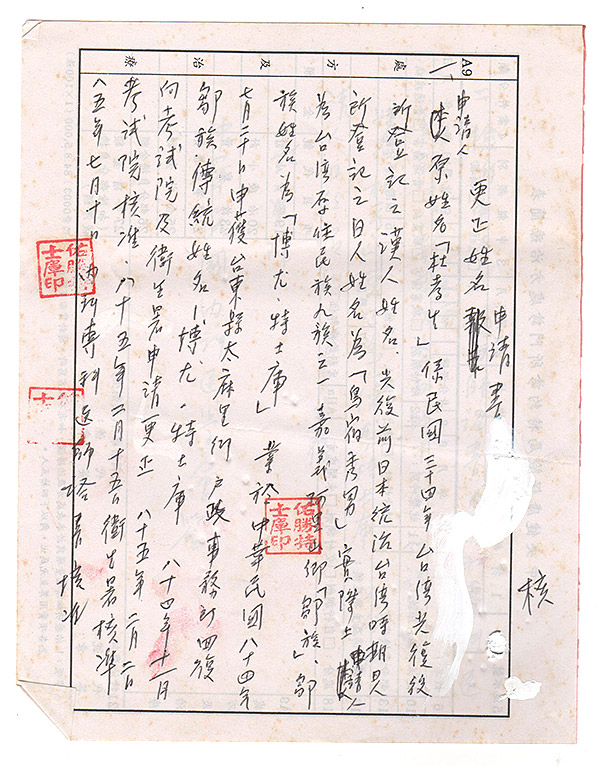 A9
療 治 及 方 處
更正姓名申請書
核
一、
申請人
原姓名「杜孝生」係民國三十四年台湾光復後
所登記之漢人姓名.光復前日本統治台湾時期見
所登記之日人姓名為「鳥宿秀男」實際上申請人
為台湾原住民族九族之一嘉義 山鄉「鄒族」.鄒
族姓名為「博尤・特士庫」業於中華民國八十四年
七月二十日申獲台東縣太麻里鄉戶政事務所回復
鄒族傳統姓名:博尤・特士庫 八十四年十一月
向考試院及衛生署申請更正 八十五年二月二日
考試院核准.八十五年二月十五日衛生署核準
八五年七月十日內科專科医師
核准
佑勝特士庫印
佑勝特士庫印